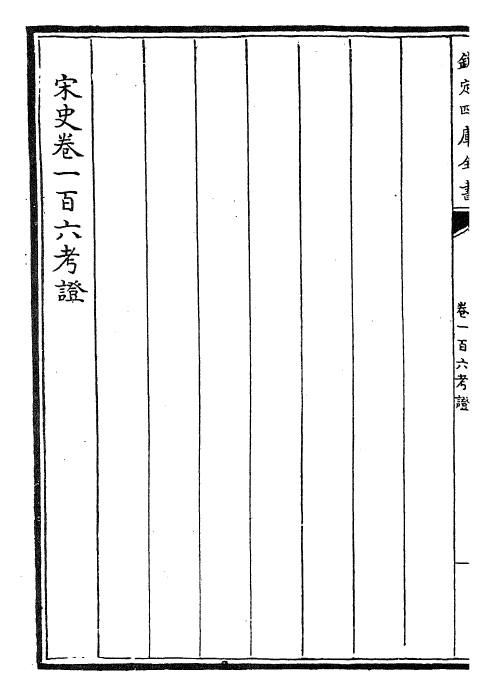 欽定四庫全書
卷一百六考證
宋史卷一百六考證